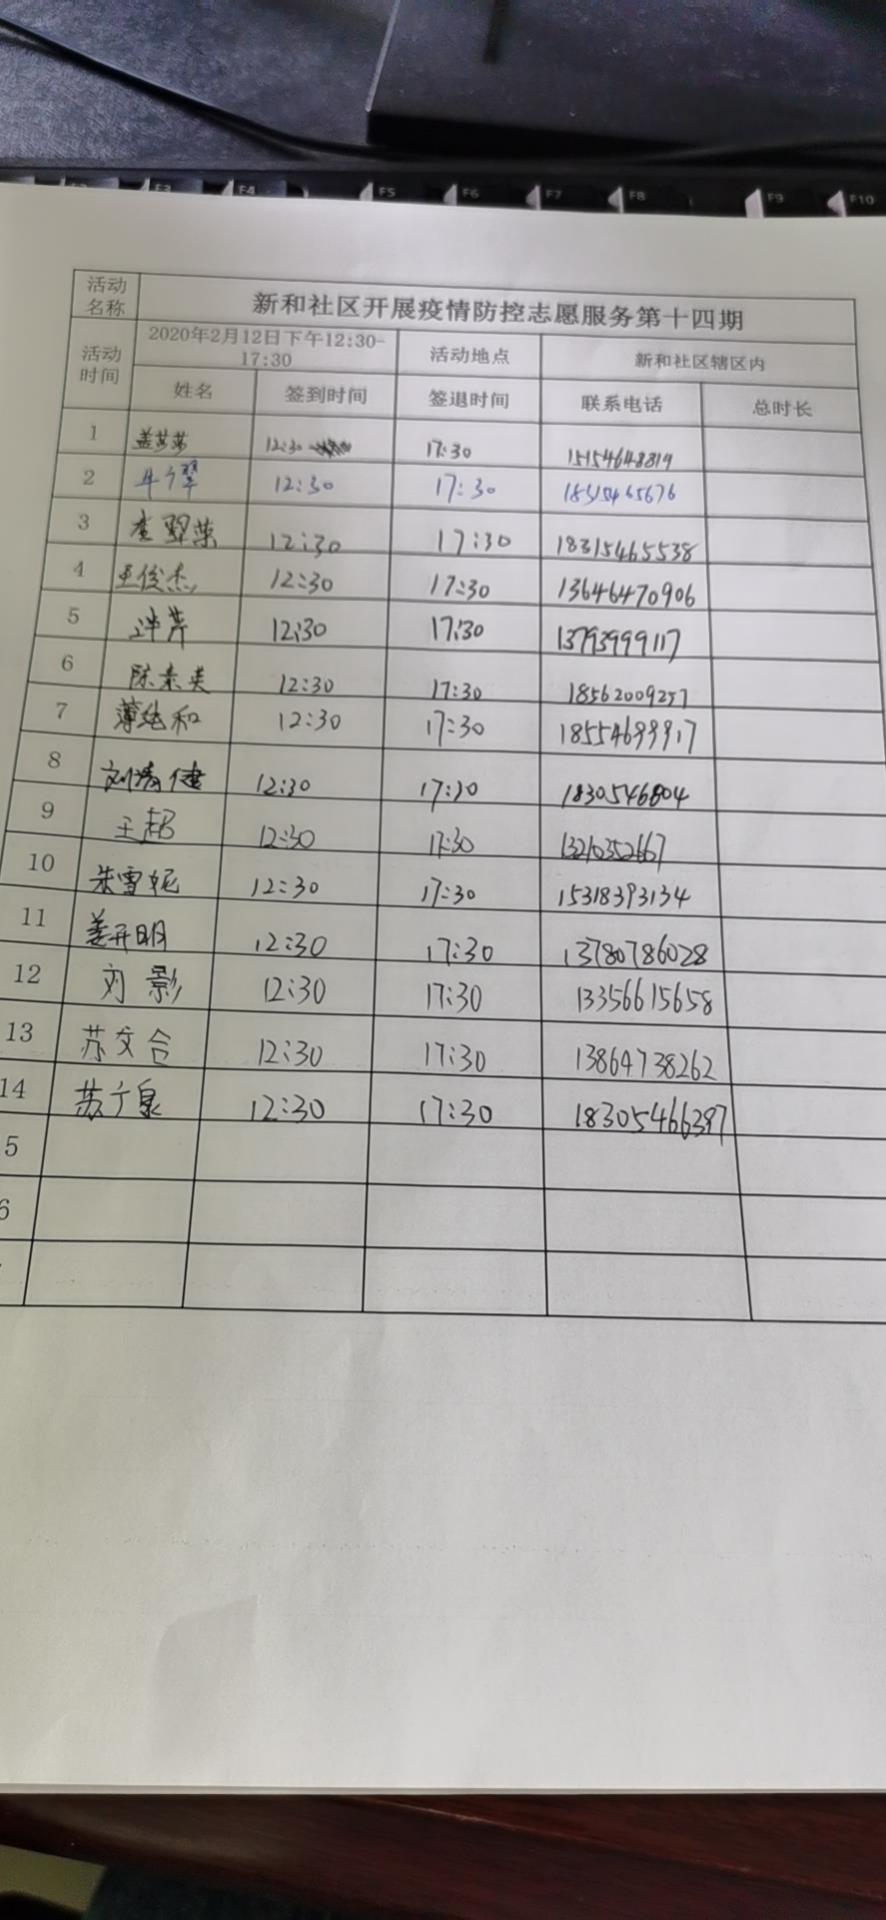 F3 F4 F5 F6 F7 F8 F9 F10
活动名称 新和社区开展疫情防控志愿服务第十四期
活动时间 2020年2月12日下午12:30-17:30 活动地点 新和社区辖区内
姓名 签到时间 签退时间 联系电话 总时长
1 盖莎莎 12:30 17:30 15154648819
2 12:30 17:30 18315465676
3 12:30 17:30 18315465538
4 王俊杰 12:30 17:30 13646470906
5 12:30 17:30 13793999117
6 陈素英 12:30 17:30 18562009257
7 薄纯和 12:30 17:30
8 刘清健 12:30 17:30 1830546804
9 王超 12:30 17:30 13210352667
10 朱雪妮 12:30 17:30 15318393134
11 姜开明 12:30 17:30 13780786028
12 刘影 12:30 17:30 13356615658
13 苏文合 12:30 17:30 13864738262
14 苏广泉 12:30 17:30 18305466397
5
6